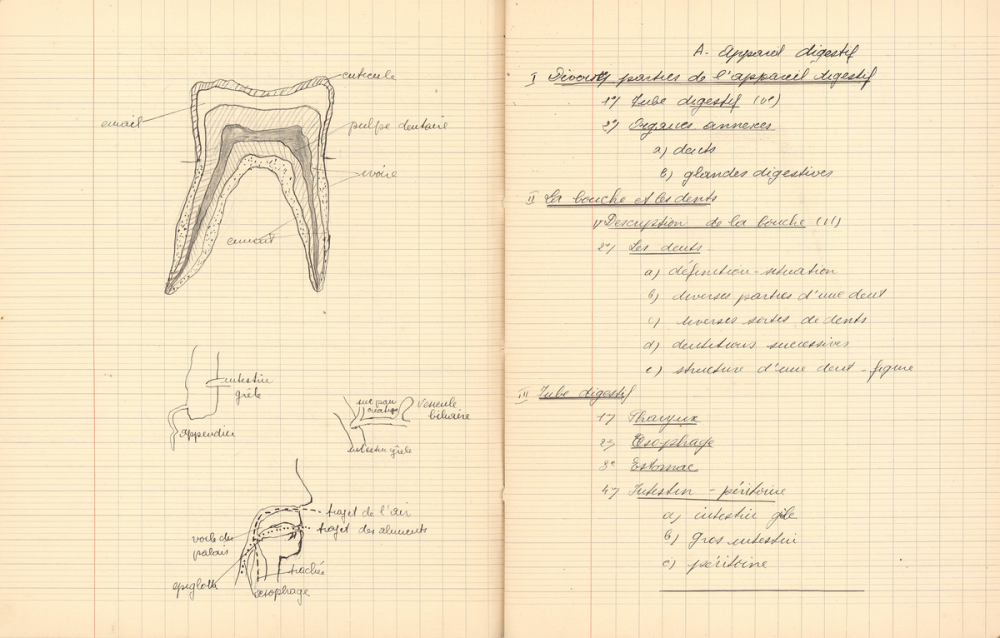 cuticule
émail
pulpe dentaire
ivoire
cément
intestin
grêle
appendice
suc pan
créatique
Vésicule
biliaire
intestin grêle
trajet de l'air
trajet des aliments
voile du
palais
trachée
épiglotte
œsophage
A. Appareil digestif
I Diverses parties de l'appareil digestif
1°) Tube digestif
2°) Organes annexes
a) dents
b) glandes digestives
II La bouche et les dents
1°) Description de la bouche
2°) Les dents
a) définition - situation
b) diverses parties d'une dent
c) diverses sortes de dents
d) dentitions successives
e) structure d'une dent - figure
III Tube digestif
1°) Pharynx
2°) Œsophage
3° Estomac
4°) Intestin - péritoine
a) intestin gêle
b) gros intestin
c) péritoine